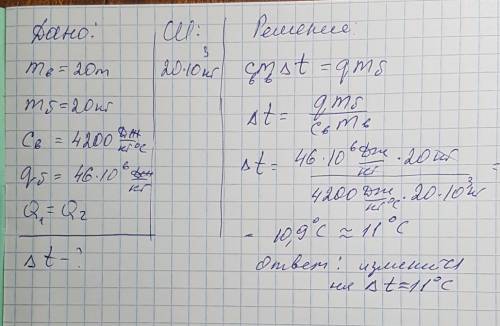 Дано:
mв = 20т
mб = 20кг
cв = 4200 Дж/кг°C
qб = 46·10⁶ Дж/кг
Q₁ = Q₂
Δt - ?
СИ:
20·10³кг
Решение
cвmвΔt = qmб
Δt = qmб/cвmв
Δt = 46·10⁶ Дж/кг · 20кг / 4200 Дж/кг°C · 20·10³кг =
= 10,9°C ≈ 11°C
Ответ: изменится
на Δt = 11°C